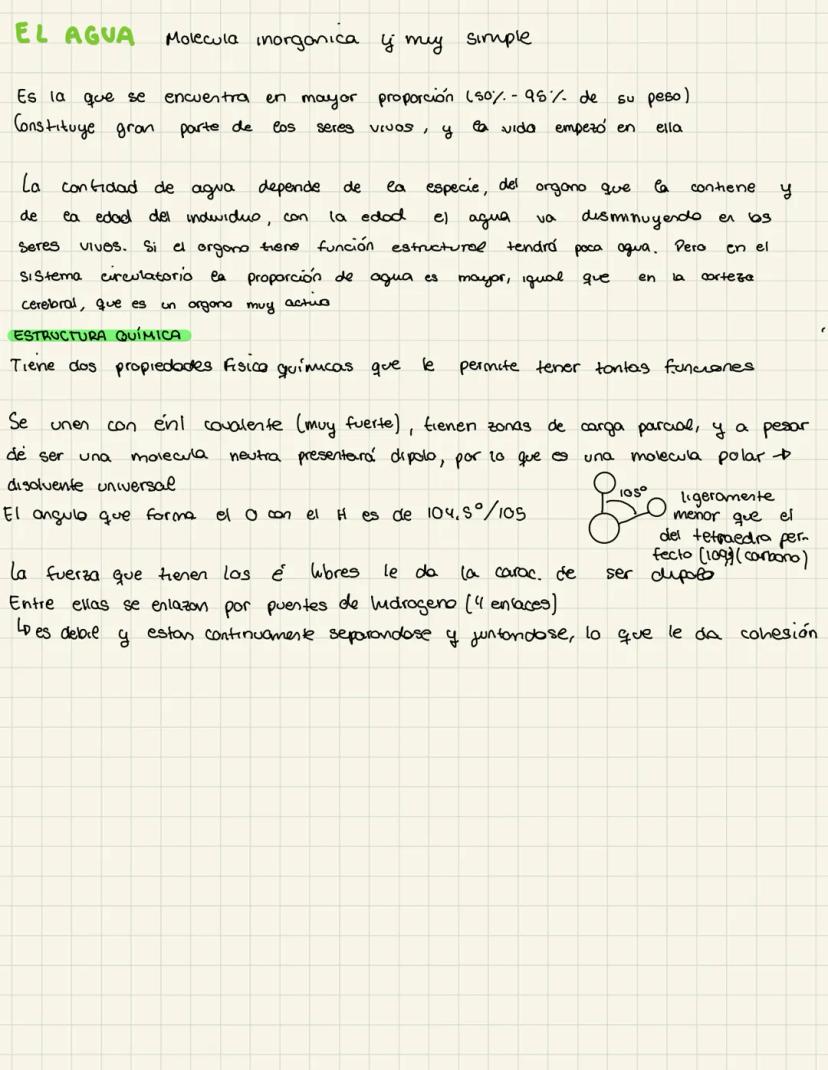 EL AGUA Molecula inorganica y muy simple
Es la que se encuentra en mayor proporción (50% - 95% de su peso)
Constituye gran parte de los seres vivos, y la vida empezó en ella
La cantidad de agua depende de la especie, del organo que la contiene y
de la edad del individuo, con la edad el agua va disminuyendo en los
seres vivos. Si el organo tiene función estructural tendrá poca agua. Pero en el
sistema circulatorio la proporción de agua es mayor, igual que en la corteza
cerebral, que es un organo muy activo
ESTRUCTURA QUÍMICA
Tiene dos propiedades fisico químicas que le permite tener tantas funciones
Se unen con énl covalente (muy fuerte), tienen zonas de carga parcial, y a pesar
de ser una molecula neutra presentará dipolo, por lo que es una molecula polar →
disolvente universal
El angulo que forma el O con el H es de 104,5º/105
105º
ligeramente
menor que el
del tetraedro per-
fecto (109)(carbono)
La fuerza que tienen los é libres le da la carac. de ser dipolo
Entre ellas se enlazan por puentes de hidrogeno (4 enlaces)
↳ es debil y estan continuamente separandose y juntandose, lo que le da cohesión